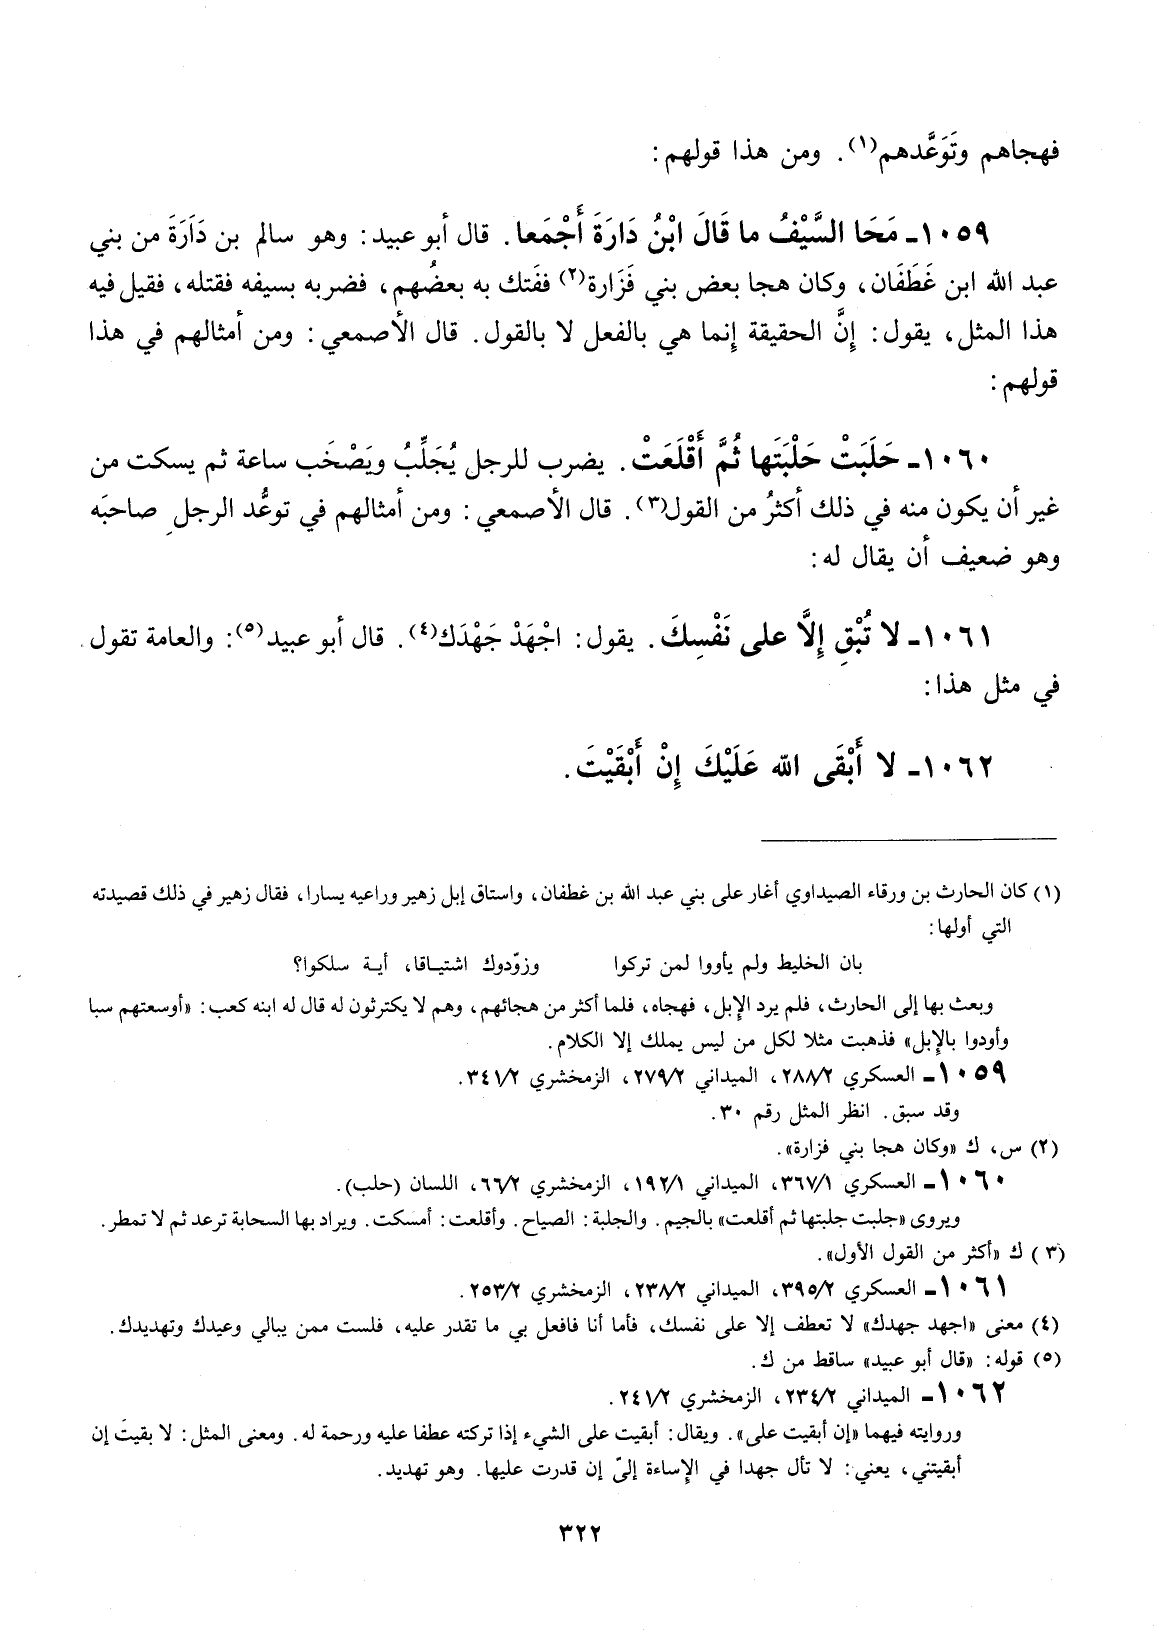 فهجاهم وتَوَعَّدهم(١). ومن هذا قولهم:
١٠٥٩ـ مَحَا السَّيْفُ ما قَالَ ابْنُ دَارَةَ أَجْمَعا. قال أبو عبيد: وهو سالم بن دَارَةَ من بني
عبد الله ابن غَطَفَان، وكان هجا بعض بني فَزَارة(٢) ففَتك به بعضُهم، فضربه بسيفه فقتله، فقيل فيه
هذا المثل، يقول: إنَّ الحقيقة إنما هي بالفعل لا بالقول. قال الأصمعي: ومن أمثالهم في هذا
قولهم:
١٠٦٠ـ حَلَبَتْ حَلْبَتَها ثُمَّ أَقْلَعَتْ. يضرب للرجل يُجَلِّبُ ويَصْخَب ساعة ثم يسكت من
غير أن يكون منه في ذلك أكثرُ من القول(٣). قال الأصمعي: ومن أمثالهم في توعُّد الرجلِ صاحبَه
وهو ضعيف أن يقال له:
١٠٦١ـ لا تُبْقِ إلَّا على نَفْسِكَ. يقول: اجْهَدْ جَهْدَك(٤). قال أبو عبيد(٥): والعامة تقول
في مثل هذا:
١٠٦٢ـ لا أَبْقَى الله عَلَيْكَ إنْ أَبْقَيْتَ.
(١) كان الحارث بن ورقاء الصيداوي أغار على بني عبد الله بن غطفان، واستاق إبل زهير وراعيه يسارا، فقال زهير في ذلك قصيدته
التي أولها:
بان الخليط ولم يأووا لمن تركوا وزوّدوك اشتياقا، أية سلكوا؟
وبعث بها إلى الحارث، فلم يرد الإبل، فهجاه، فلما أكثر من هجائهم، وهم لا يكترثون له قال له ابنه كعب: «أوسعتهم سبا
وأودوا بالإبل» فذهبت مثلا لكل من ليس يملك إلا الكلام.
١٠٥٩ـ العسكري ٢٨٨/٢، الميداني ٢٧٩/٢، الزمخشري ٣٤١/٢.
وقد سبق. انظر المثل رقم ٣٠.
(٢) س، ك «وكان هجا بني فزارة».
١٠٦٠ـ العسكري ٣٦٧/١، الميداني ١٩٢/١، الزمخشري ٦٦/٢، اللسان (حلب).
ويروى «جلبت جلبتها ثم أقلعت» بالجيم. والجلبة: الصياح. وأقلعت: أمسكت. ويراد بها السحابة ترعد ثم لا تمطر.
(٣) ك «أكثر من القول الأول».
١٠٦١ـ العسكري ٣٩٥/٢، الميداني ٢٣٨/٢، الزمخشري ٢٥٣/٢.
(٤) معنى «اجهد جهدك» لا تعطف إلا على نفسك، فأما أنا فافعل بي ما تقدر عليه، فلست ممن يبالي وعيدك وتهديدك.
(٥) قوله: «قال أبو عبيد» ساقط من ك.
١٠٦٢ـ الميداني ٢٣٤/٢، الزمخشري ٢٤١/٢.
وروايته فيهما «إن أبقيت على». ويقال: أبقيت على الشيء إذا تركته عطفا عليه ورحمة له. ومعنى المثل: لا بقيتَ إن
أبقيتني، يعني: لا تأل جهدا في الإساءة إليّ إن قدرت عليها. وهو تهديد.
٣٢٢